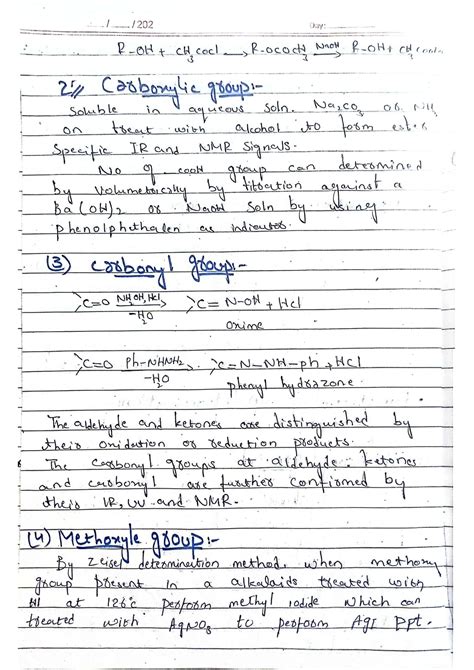 / /202 Day:
R-OH + CH3COCl → R-OCOCH3 NaOH → R-OH + CH3COONa
2) Carboxylic group:-
Soluble in aqueous soln. Na2CO3 or NH3
on treat with alcohol to form ester
Specific IR and NMR Signals.
No of COOH group can determined
by Volumetrically by titration against a
Ba(OH)2 or NaOH Soln by using
phenolphthalen as indicator.
(3) carbonyl group:-
>C=O NH2OH,HCl → -H2O >C=N-OH + HCl
oxime
>C=O Ph-NHNH2 → -H2O >C=N-NH-ph + HCl
phenyl hydrazone
The aldehyde and ketones are distinguished by
their oxidation or reduction products.
The carbonyl groups at aldehyde, ketones
and carbonyl are further confirmed by
their IR, UV and NMR.
(4) Methoxyle group:-
By Zeisel determination method, when methoxy
group present in a alkaloids treated with
HI at 126°C perform methyl iodide which can
treated with AgNO3 to perform AgI ppt.